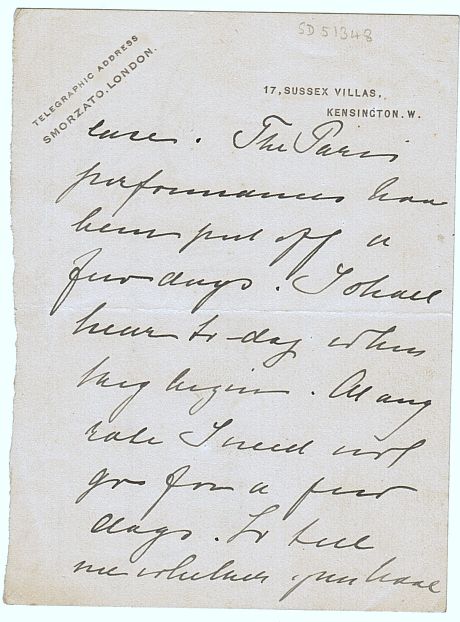 SD 51348
TELEGRAPHIC ADDRESS
SMORZATO. LONDON.
17, SUSSEX VILLAS,
KENSINGTON. W.
case. The Paris
performances have
been put off a
few days. I shall
hear to-day when
they begin. At any
rate I need not
go for a few
days. So tell
me whether you have